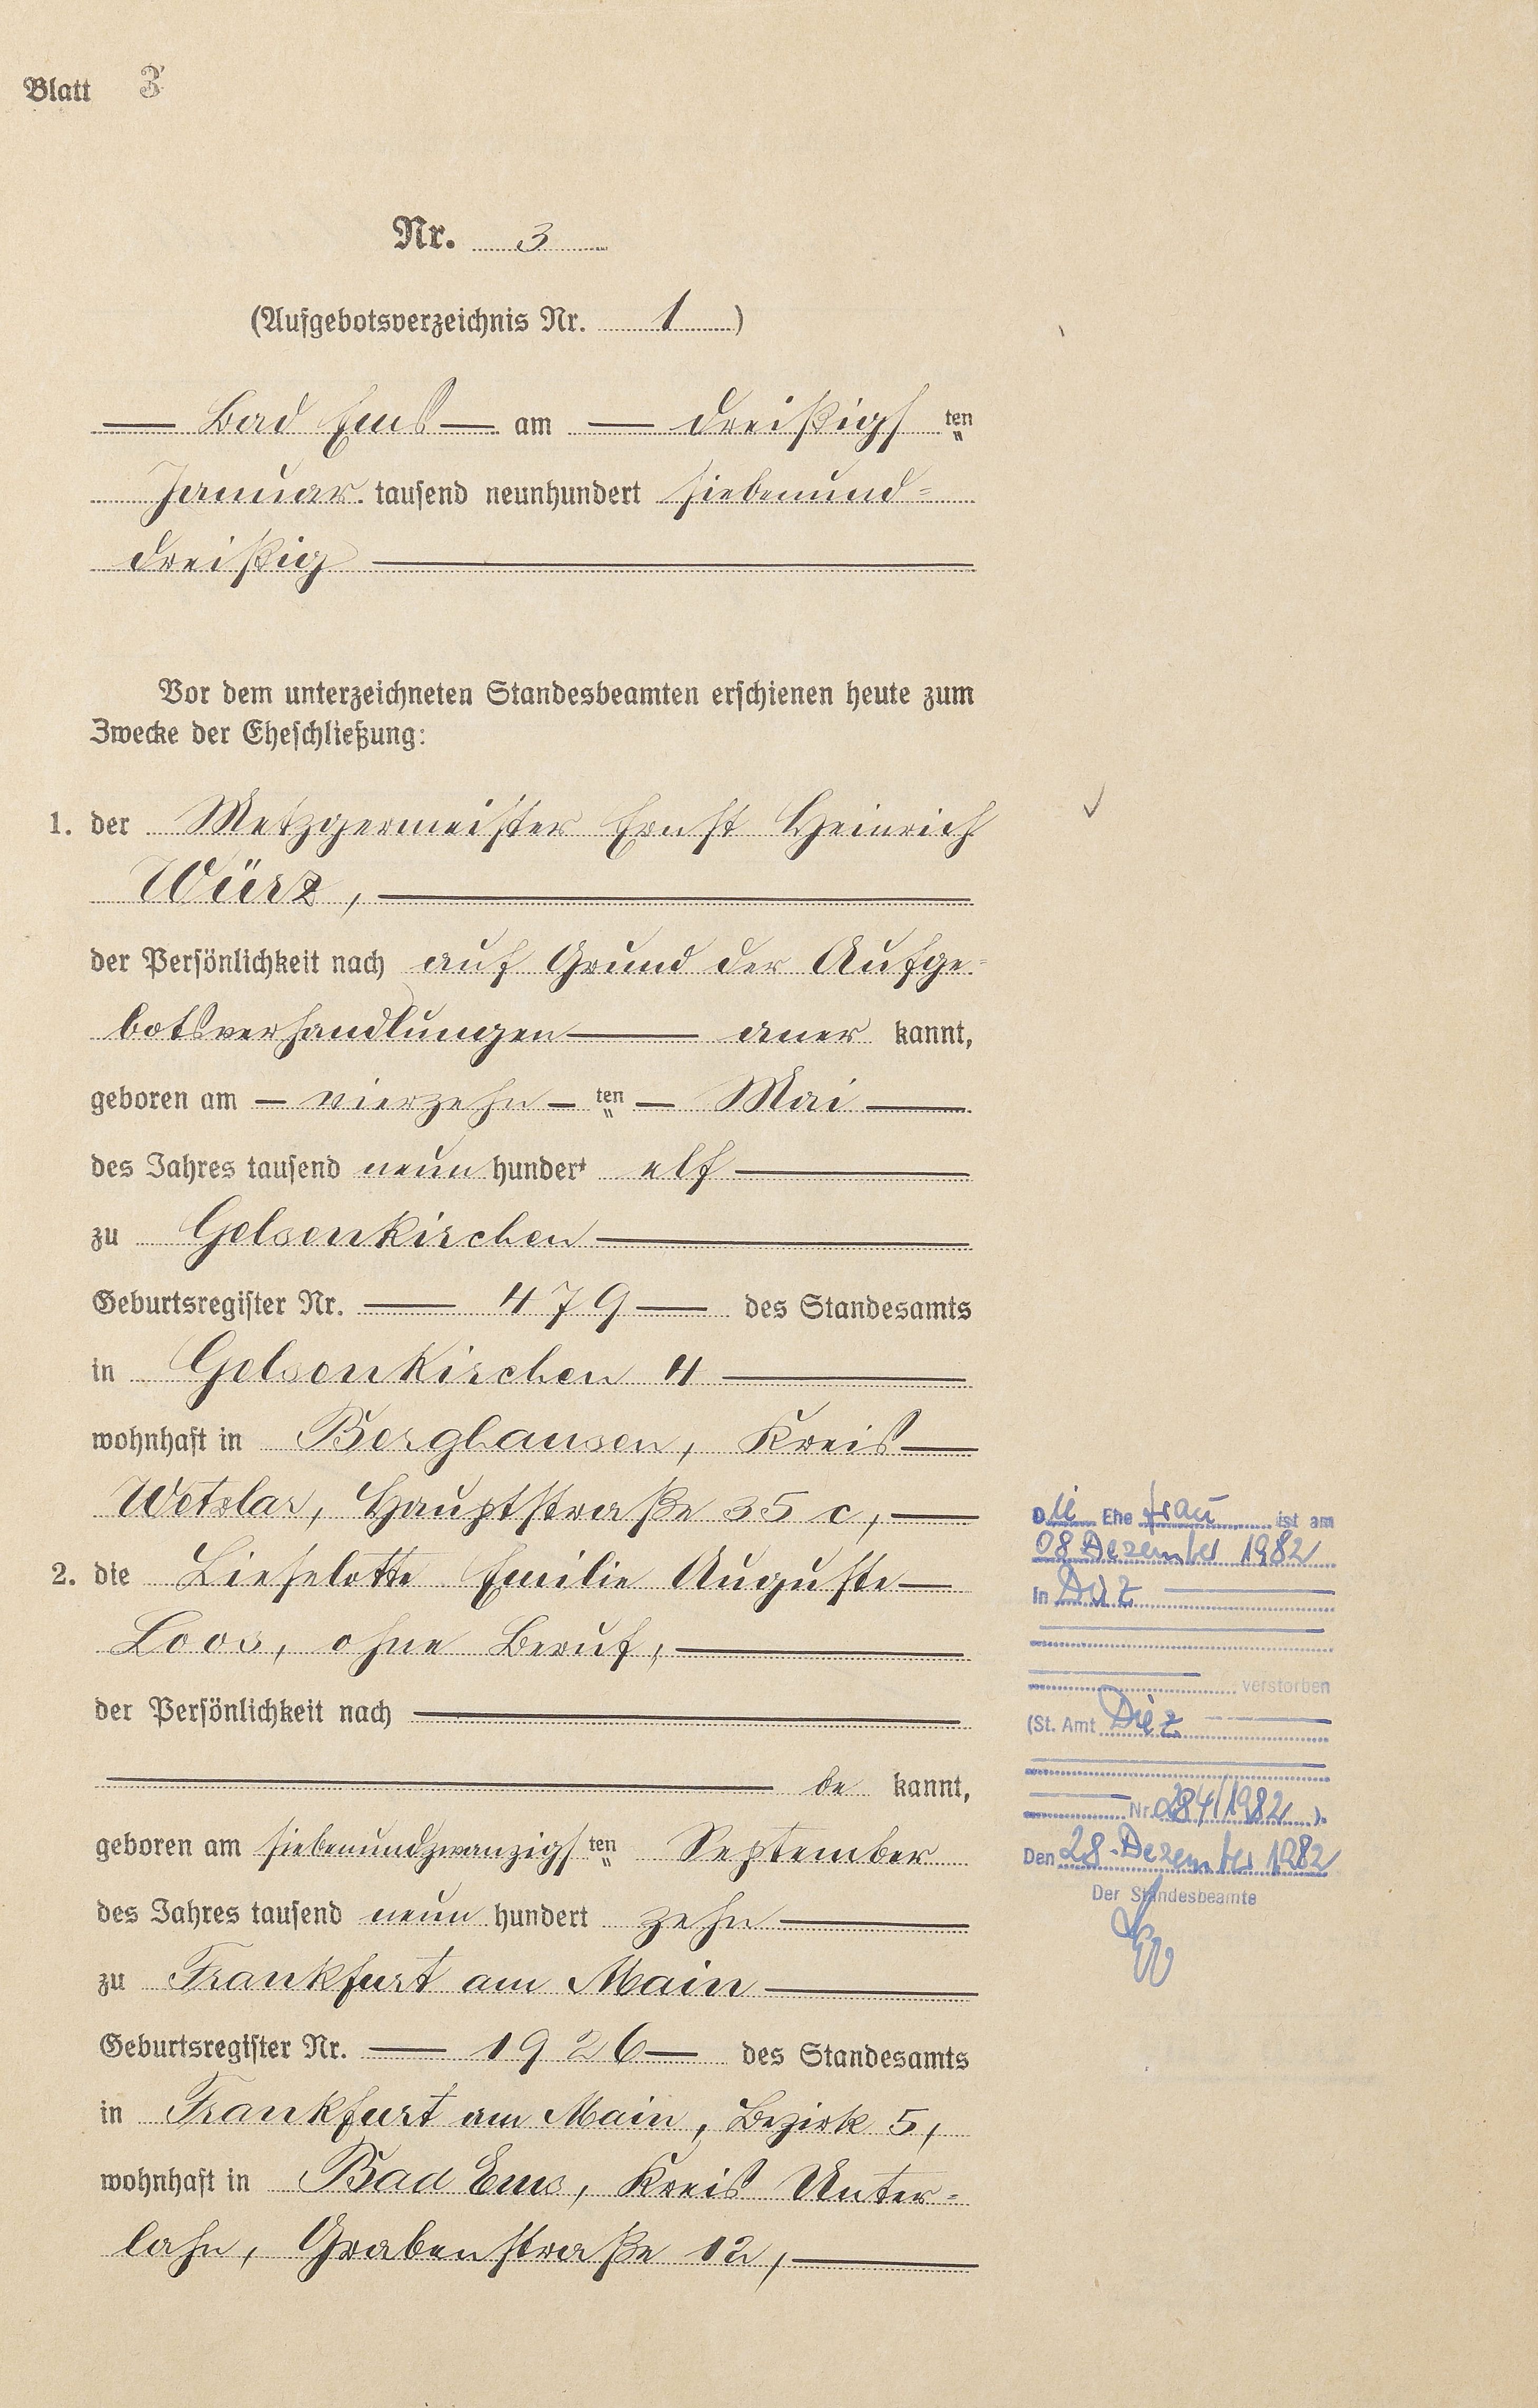 Blatt 3
Nr. 3
(Aufgebotsverzeichnis Nr. 1)
Bad Ems am dreißigsten
Januar tausend neunhundert siebenund=
dreißig
Vor dem unterzeichneten Standesbeamten erschienen heute zum
Zwecke der Eheschließung:
1. der Metzgermeister Ernst Heinrich
Würz,
der Persönlichkeit nach auf Grund der Aufge=
botsverhandlungen aner kannt,
geboren am vierzehn ten Mai
des Jahres tausend neun hundert elf
zu Gelsenkirchen
Geburtsregister Nr. 479 des Standesamts
in Gelsenkirchen 4
wohnhaft in Berghausen, Kreis
Wetzlar, Hauptstraße 35 c,
2. die Lieselotte Emilie Auguste
Loos, ohne Beruf,
der Persönlichkeit nach
be kannt,
geboren am siebenundzwanzigsten September
des Jahres tausend neun hundert zehn
zu Frankfurt am Main
Geburtsregister Nr. 1926 des Standesamts
in Frankfurt am Main, Bezirk 5,
wohnhaft in Bad Ems, Kreis Unter=
lahn, Grabenstraße 12,
Die Ehefrau ist am
08 Dezember 1982
in Diez
verstorben
(St. Amt Diez
Nr. 284/1982).
Den 28. Dezember 1982
Der Standesbeamte